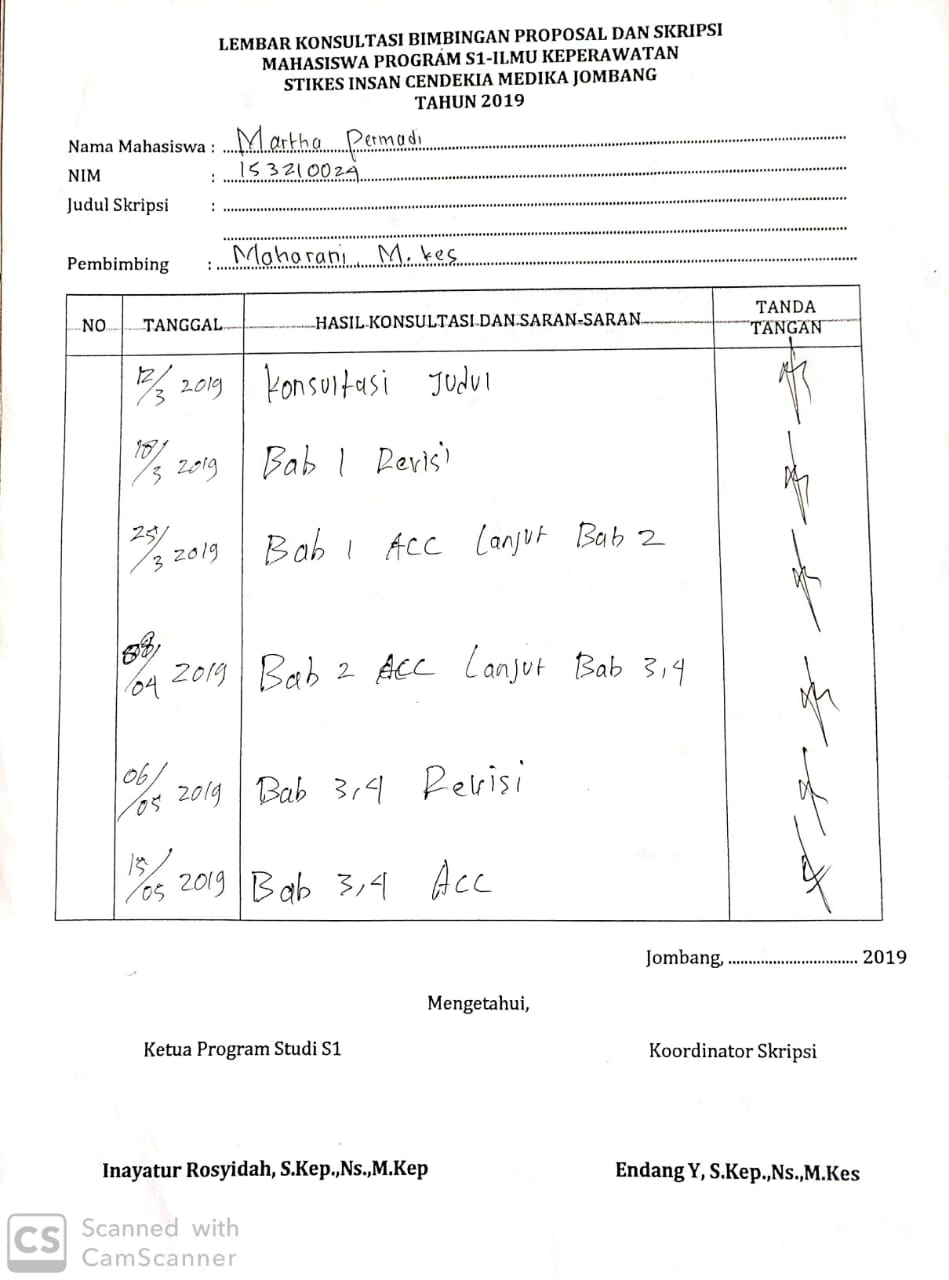 LEMBAR KONSULTASI BIMBINGAN PROPOSAL DAN SKRIPSI
MAHASISWA PROGRAM S1-ILMU KEPERAWATAN
STIKES INSAN CENDEKIA MEDIKA JOMBANG
TAHUN 2019
Nama Mahasiswa : Martha Permadi
NIM : 153210024
Judul Skripsi :
Pembimbing : Maharani, M.kes
NO TANGGAL HASIL KONSULTASI DAN SARAN-SARAN TANDA TANGAN
12/3 2019 Konsultasi Judul
18/3 2019 Bab 1 Revisi
25/3 2019 Bab 1 ACC Lanjut Bab 2
08/04 2019 Bab 2 ACC Lanjut Bab 3,4
06/05 2019 Bab 3,4 Revisi
15/05 2019 Bab 3,4 Acc
Jombang, .................................. 2019
Mengetahui,
Ketua Program Studi S1 Koordinator Skripsi
Inayatur Rosyidah, S.Kep.,Ns.,M.Kep Endang Y, S.Kep.,Ns.,M.Kes
CS Scanned with
CamScanner